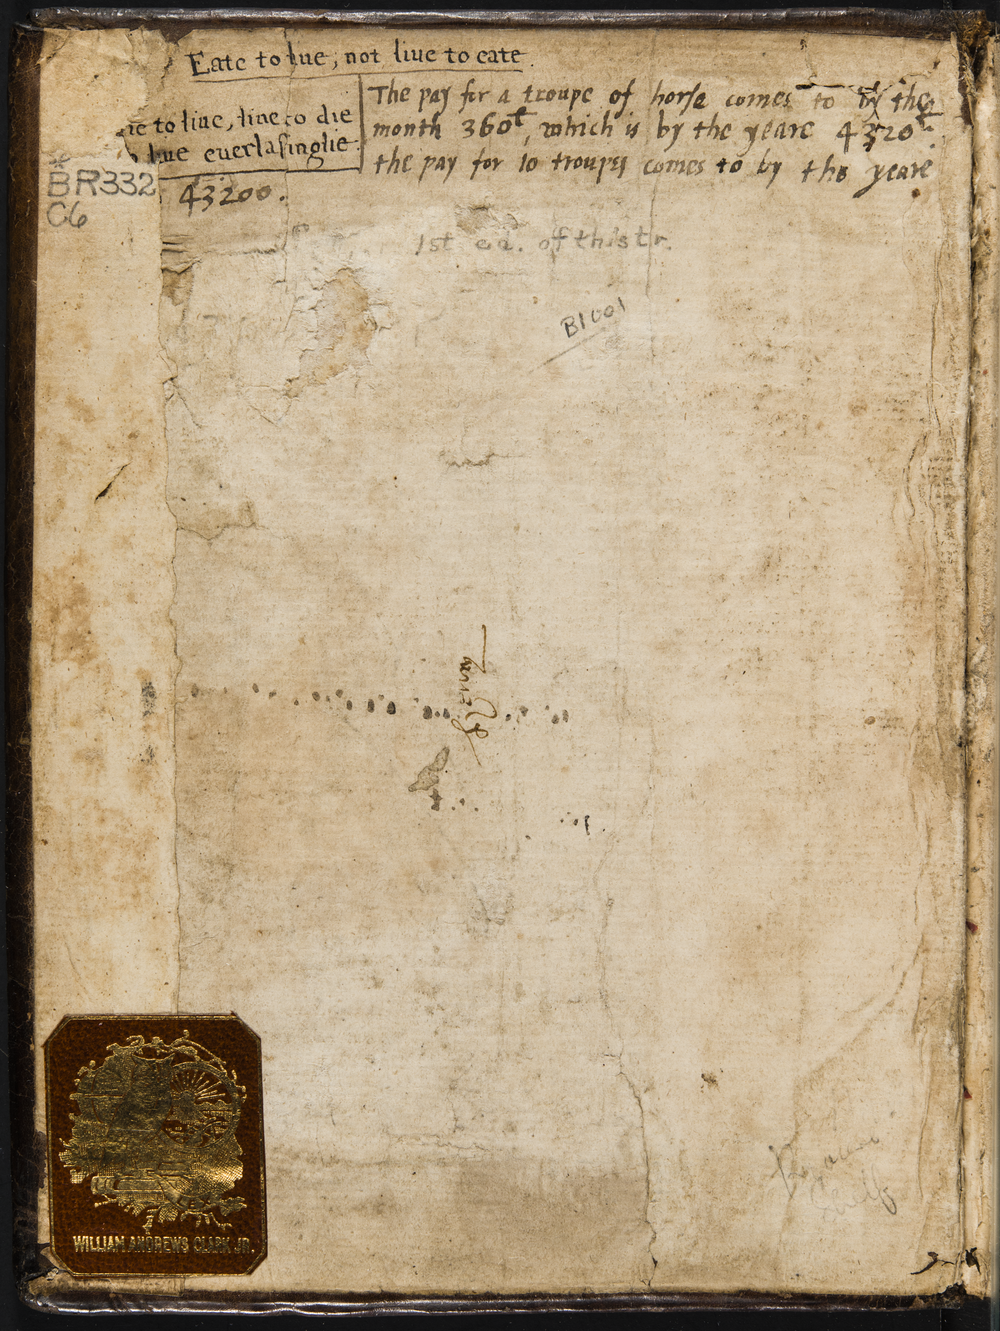 Eate to liue, not liue to eate.
ie to liue, liue to die
liue euerlasinglie.
The pay for a troupe of horse comes to by the
month 360ł, which is by the yeare 4320ł.
the pay for 10 troupes comes to by the yeare
43200.
BR332
C6
1st ed. of this tr.
B1001
WILLIAM ANDREWS CLARK JR.